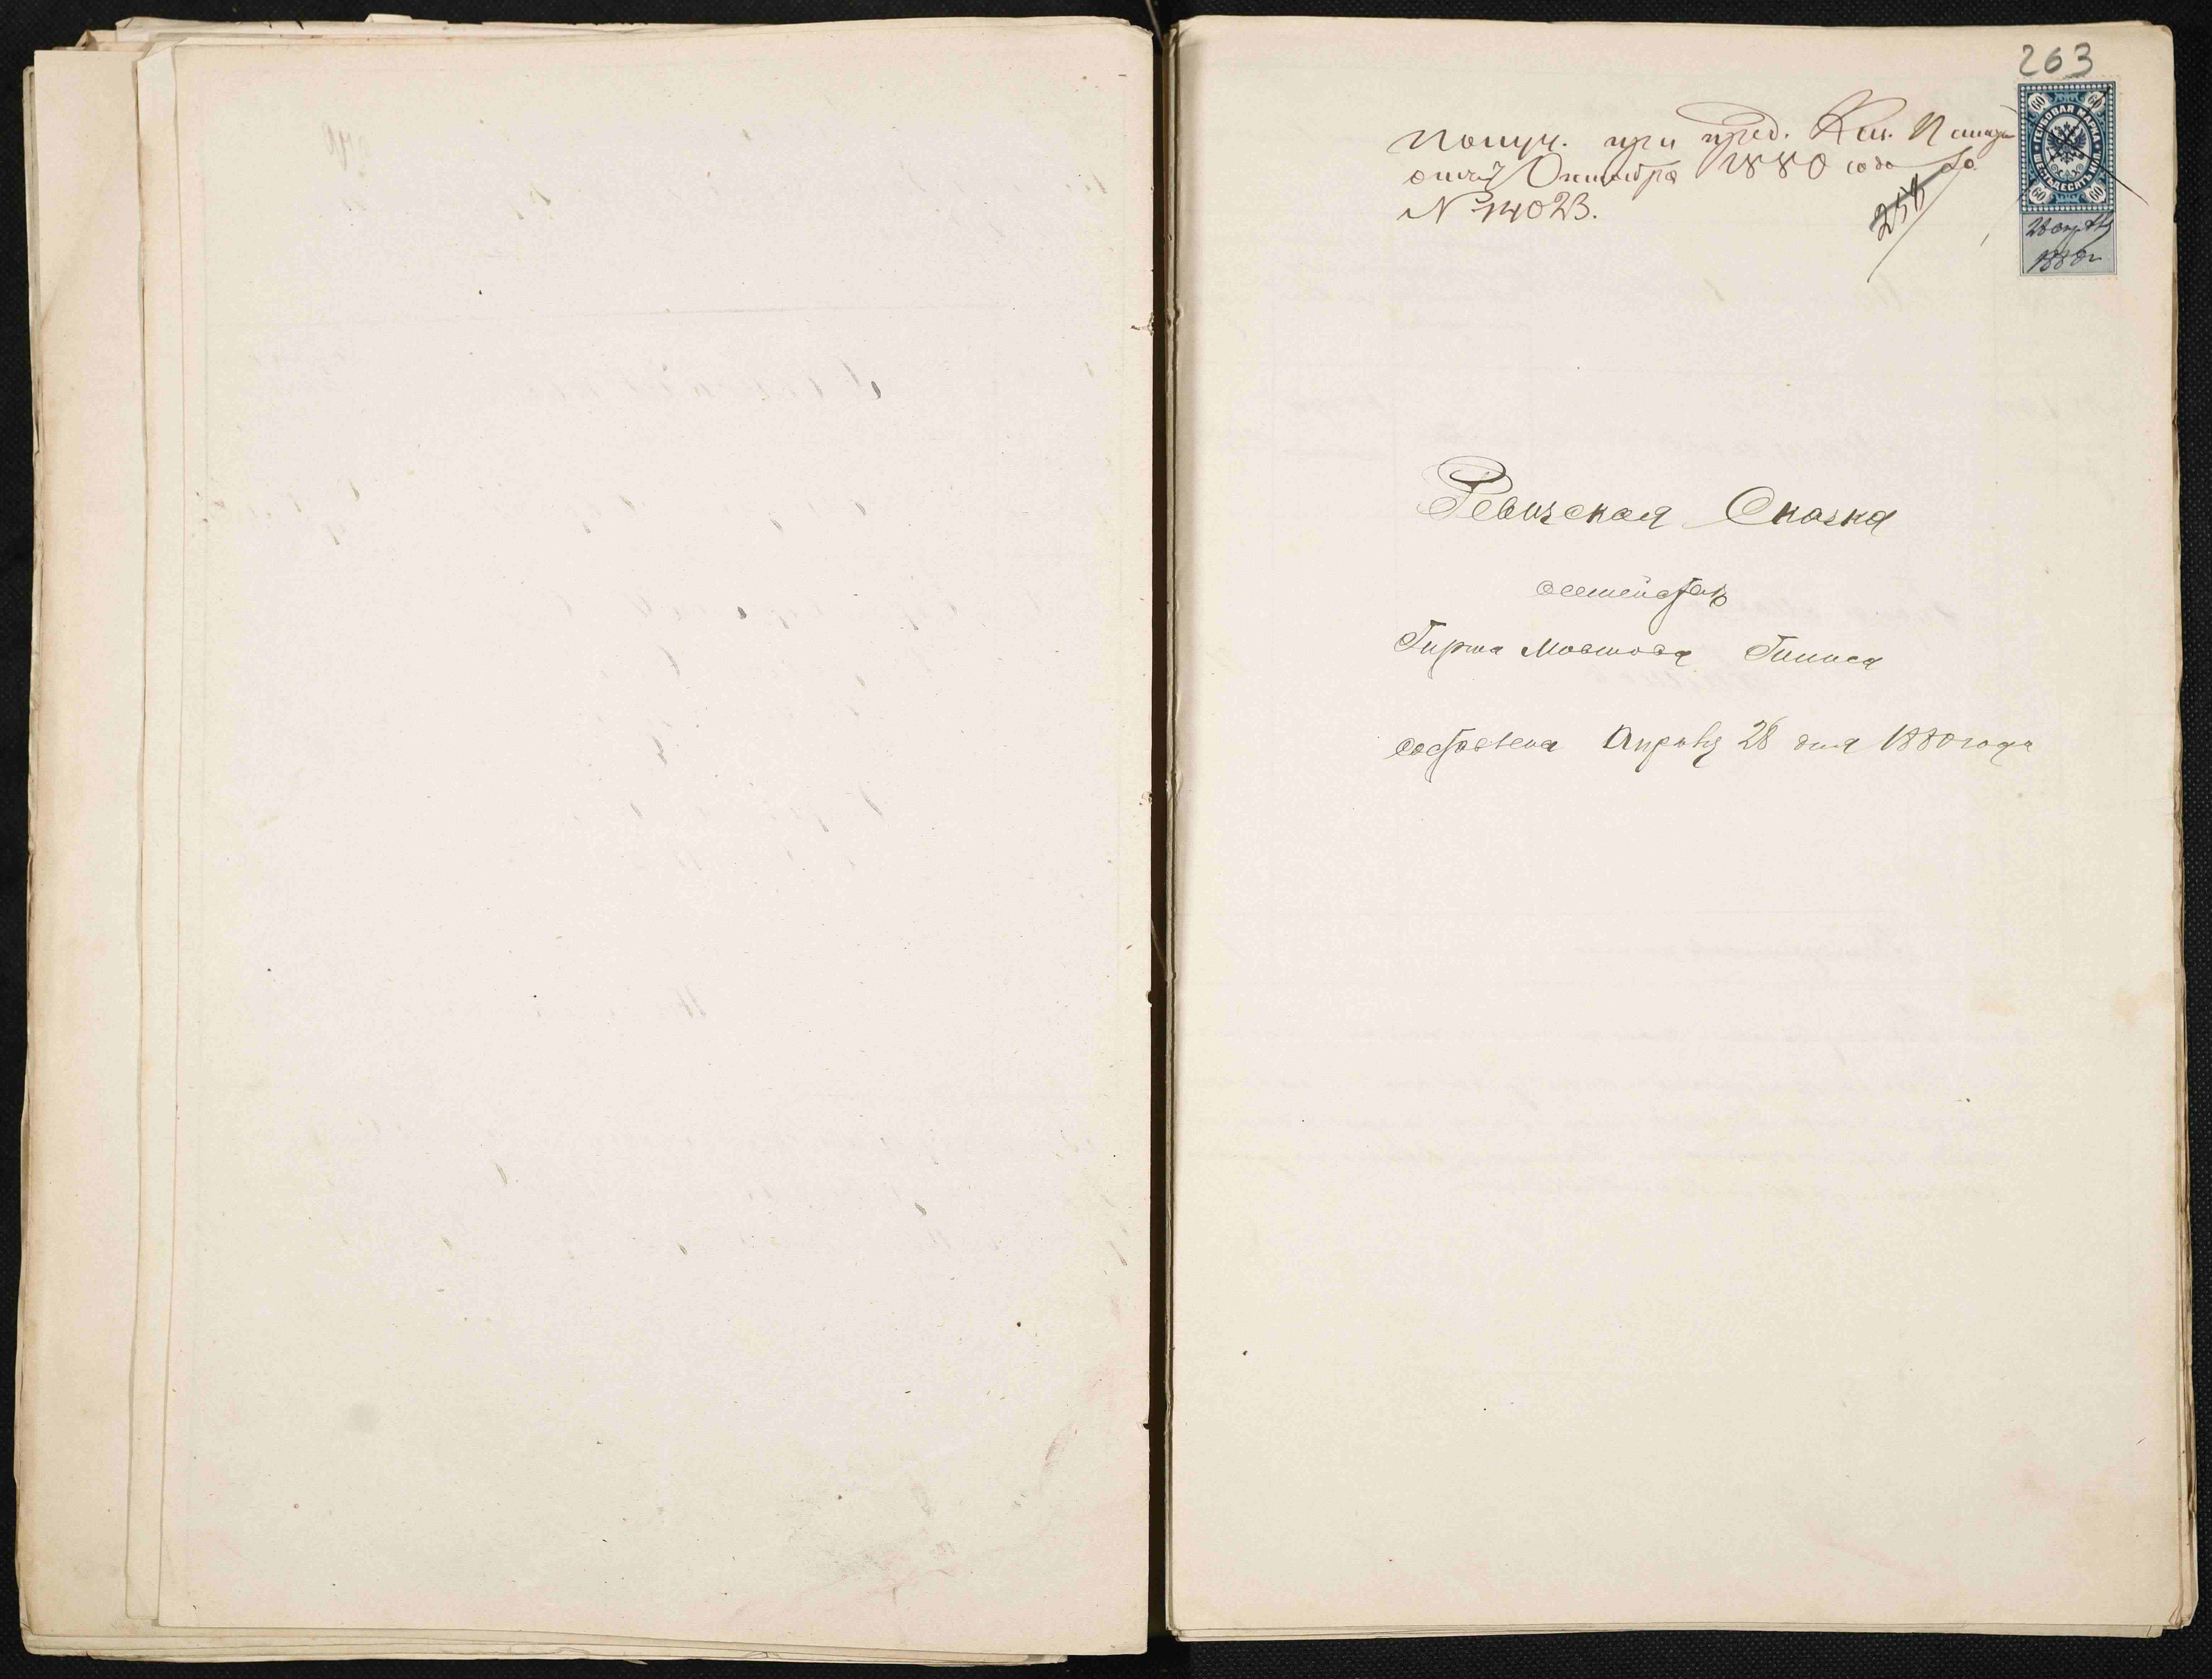 263
Получ. при пред. Каз. Палаты
от 7 Октября 1880 года за
№ 14023.
258
60 60
ГЕРБОВАЯ МАРКА
ШЕСТЬДЕСЯТЪ КОП.
60 60
28 Апрѣля
1880 г
Ревизская Сказка
семейства
Гирша Мовшова
составлена Апрѣля 28 дня 1880 года